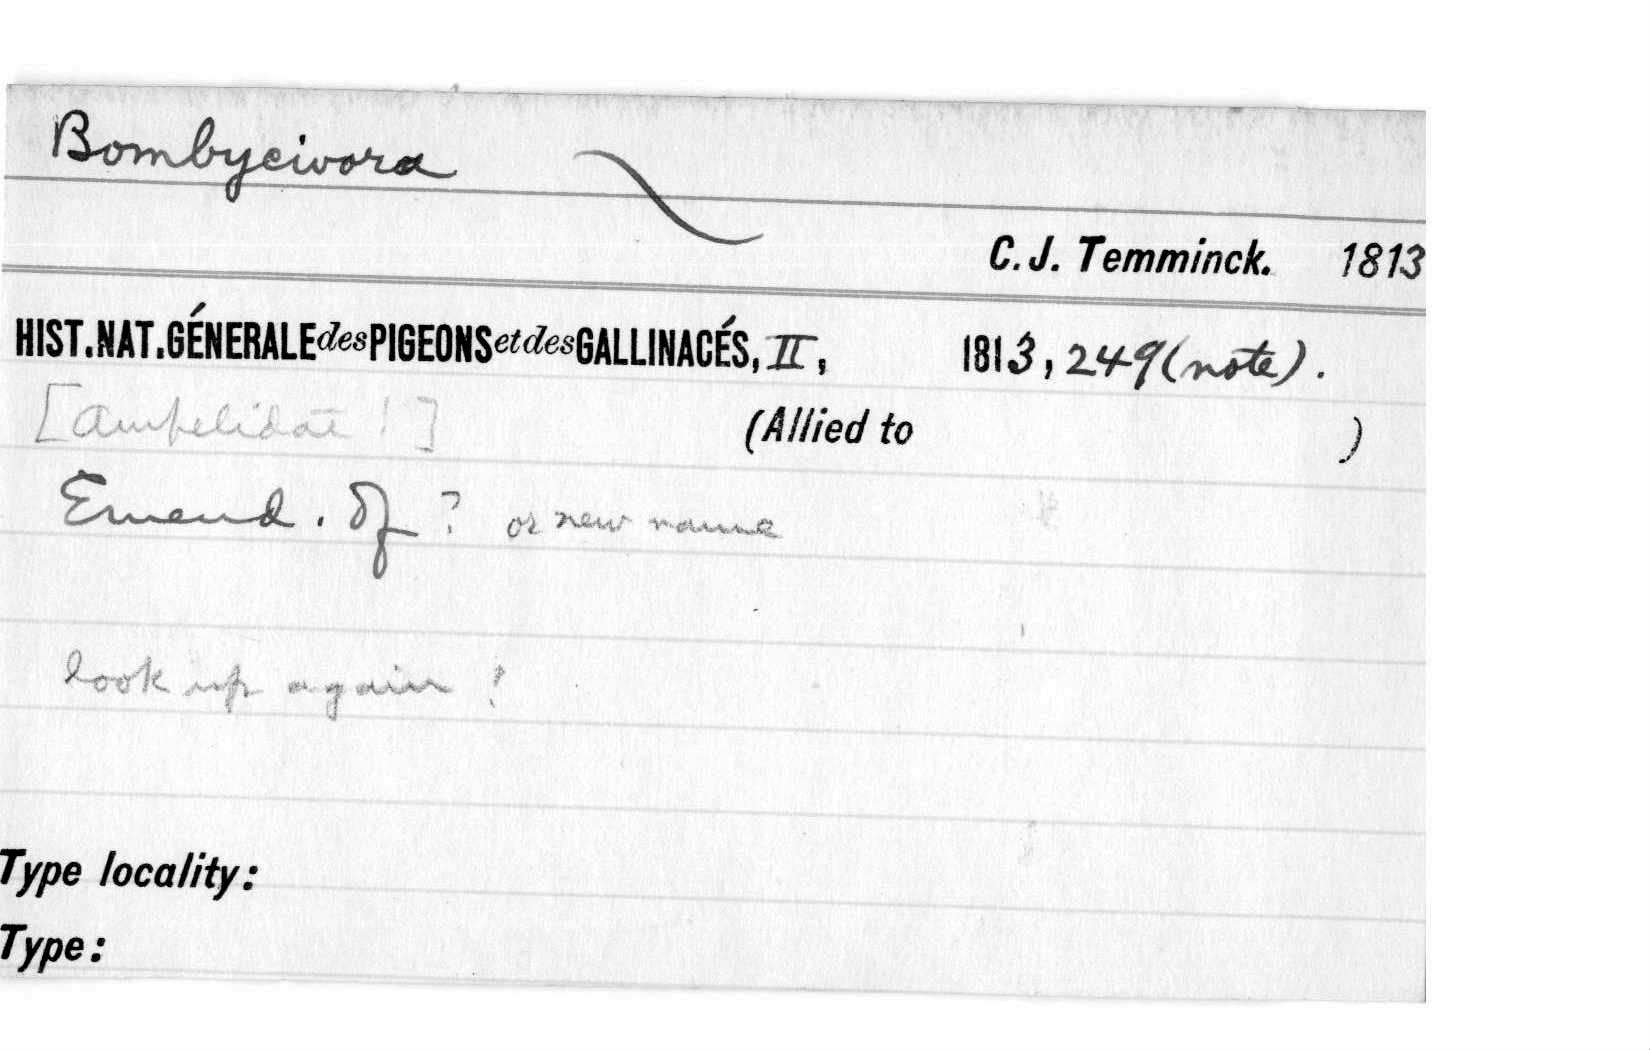 Bombycivora
C. J. Temminck. 1813
HIST. NAT. GÉNERALE des PIGEONS et des GALLINACÉS, II, 1813, 249 (note).
[Ampelidae !] (Allied to )
Emend. Of ? or new name
look up again !
Type locality:
Type: